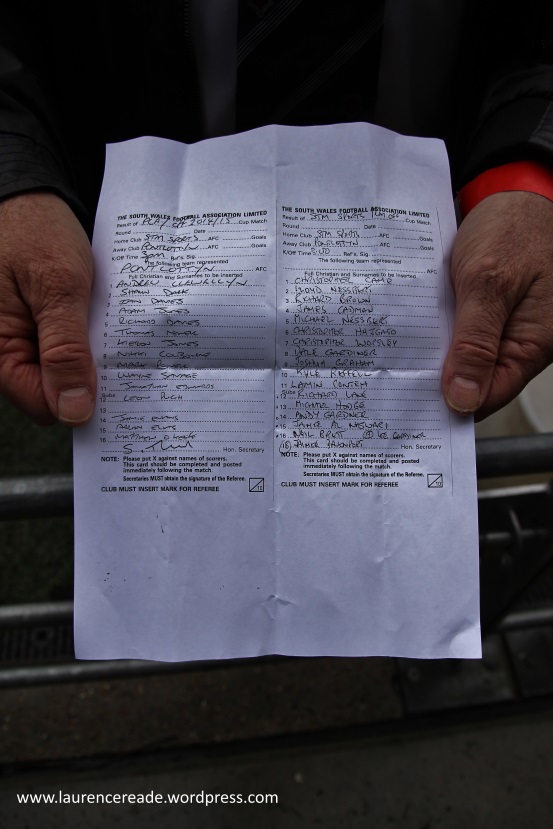 THE SOUTH WALES FOOTBALL ASSOCIATION LIMITED
Result of PLAY OFF 2014/15 Cup Match
Round Date
Home Club STM SPORTS AFC Goals
Away Club PONTLOTTYN AFC Goals
K/Off Time 3pm Ref's Sig.
The following team represented
PONTLOTTYN AFC
Full Christian and Surnames to be inserted
1 ANDREW LLEWELLYN
2 SHAUN DARK
3 DAVIES
4 ADAM JONES
5 RICHARD DAVIES
6 THOMAS
7 KIERON JONES
8 NIKKI
9 MARK
10 SAVAGE
11 JONATHAN EDWARDS
Subs
12 LEON PUGH
13
14 JAMIE EVANS
15
16 MATTHEW
Hon. Secretary
NOTE: Please put X against names of scorers.
This card should be completed and posted
immediately following the match.
Secretaries MUST obtain the signature of the Referee.
CLUB MUST INSERT MARK FOR REFEREE 10
THE SOUTH WALES FOOTBALL ASSOCIATION LIMITED
Result of STM SPORTS Cup Match
Round Date
Home Club STM SPORTS Goals
Away Club PONTLOTTYN AFC Goals
K/Off Time Ref's Sig.
The following team represented
AFC
Full Christian and Surnames to be inserted
1 CHRISTOPHER CAMP
2 LLOYD NESSBERT
3 RICHARD BROWN
4 JAMES CADMAN
5 MICHAEL NESSBERT
6 CHRISTOPHER
7 CHRISTOPHER WORSLEY
8 LYLE GARDINER
9 JOSHUA GRAHAM
10 KYLE
11 LAMIN CONTEH
Subs
12 RICHARD LANE
13 MICHAEL HODGE
14 ANDY GARDINER
15 JAMIE AL
16 NEIL BRUTT
Hon. Secretary
NOTE: Please put X against names of scorers.
This card should be completed and posted
immediately following the match.
Secretaries MUST obtain the signature of the Referee.
CLUB MUST INSERT MARK FOR REFEREE 10
www.laurencereade.wordpress.com